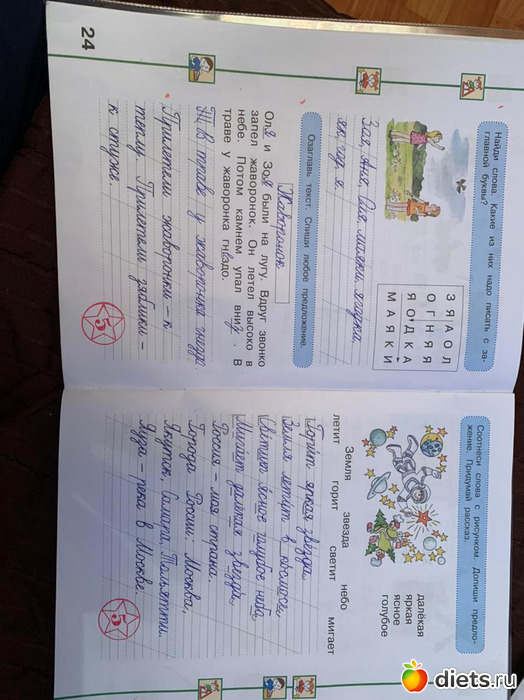 Найди слова. Какие из них надо писать с за-
главной буквы?
З Я А О Л
О Г Н Я Я
Я О Д К А
М А Я К И
Зоя, Аня, Оля, маяки, ягодка,
Озаглавь текст. Спиши любое предложение.
Жаворонок
Оля и Зоя были на лугу. Вдруг звонко
запел жаворонок Он летел высоко в
небе. Потом камнем упал вниз. В
траве у жаворонка гнездо.
В траве у жаворонка гнездо.
Прилетели жаворонки – к
теплу. Прилетели зяблики –
к стуже.
5
24
Соотнеси слова с рисунком. Допиши предло-
жение. Придумай рассказ.
далёкая
яркая
ясное
голубое
Земля звезда небо
летит горит светит мигает
Горит яркая звезда.
Земля летит в космосе.
Светит ясное голубое небо.
Мигает далёкая звезда.
Россия – моя страна.
Города России: Москва,
Якутск, Самара, Тольятти.
Яуза – река в Москве.
5
diets.ru